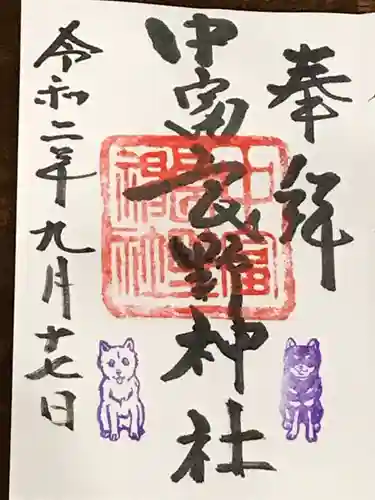 奉拝
中富長野神社
令和二年九月十七日